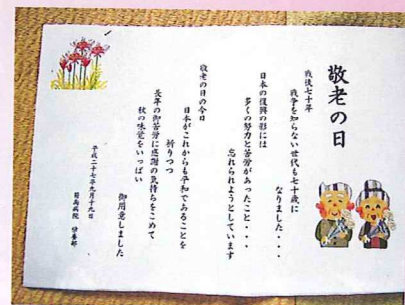 敬老の日
戦後七十年
戦争を知らない世代も七十歳に
なりました・・・
日本の復興の影には
多くの努力と苦労があったこと・・・
忘れられようとしています
敬老の日の今日
日本がこれからも平和であることを
祈りつつ
長年の御苦労に感謝の気持ちをこめて
秋の味覚をいっぱい
御用意しました
平成二十七年九月十九日
病院 栄養部